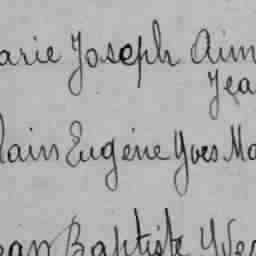 arie Joseph Aim
Jea
lain Eugène Yves Ma
ean Baptiste Yve